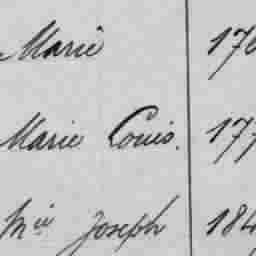 Marie 176
Marie Louis. 177
Mie Joseph 184